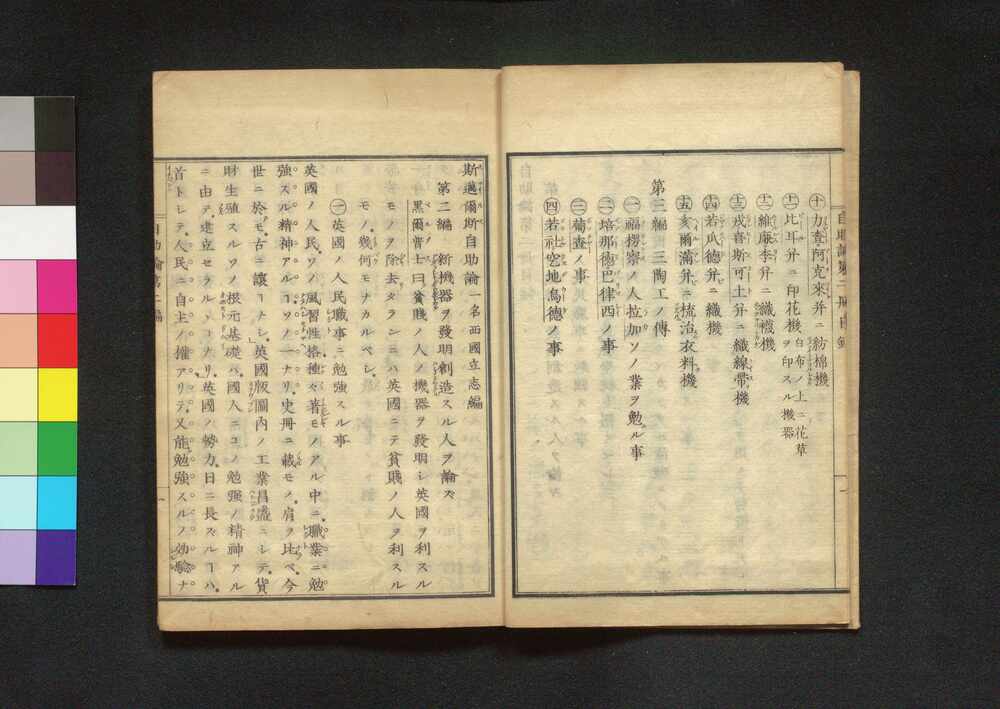 自助論第二編目録
十 力査阿克來幷ニ紡棉機
十一 比耳幷ニ印花機 白布ノ上ニ花草ヲ印スル機器
十二 維廉李幷ニ織襪機
十三 戎喜斯可土幷ニ織線帶機
十四 若瓜德幷ニ織機
十五 亥爾滿幷ニ梳治衣料機
第三編 三陶工ノ傳
一 福楞察ノ人拉加ソノ業ヲ勉ル事
二 培那德巴律西ノ事
三 葡査ノ事
四 若社空地烏德ノ事
斯邁爾斯自助論 一名西國立志編
第二編 新機器ヲ發明創造スル人ヲ論ズ
黑爾普士曰貧賤ノ人ノ機器ヲ發明シ英國ヲ利スル
モノヲ除去タランニハ英國ニテ貧賤ノ人ヲ利スル
モノ幾何モナカルベシ
一 英國ノ人民職事ニ勉强スル事
英國ノ人民ソノ風習性格種々著モノアル中ニ職業ニ勉
强スル精神アルヿソノ一ナリ史册ニ載モノ肩ヲ比ベ今
世ニ於モ古ニ讓ヿナシ英國版圖内ノ工業昌盛ニシテ貨
財生殖スルソノ根元基礎ハ國人ニコノ勉强ノ精神アル
ニ由テ建立セラルヽヿナリ英國ノ勢力日ニ長ズルヿハ
首トシテ人民ニ自主ノ權アリテ又能勉强スルノ効驗ナ
自助論第二編
一